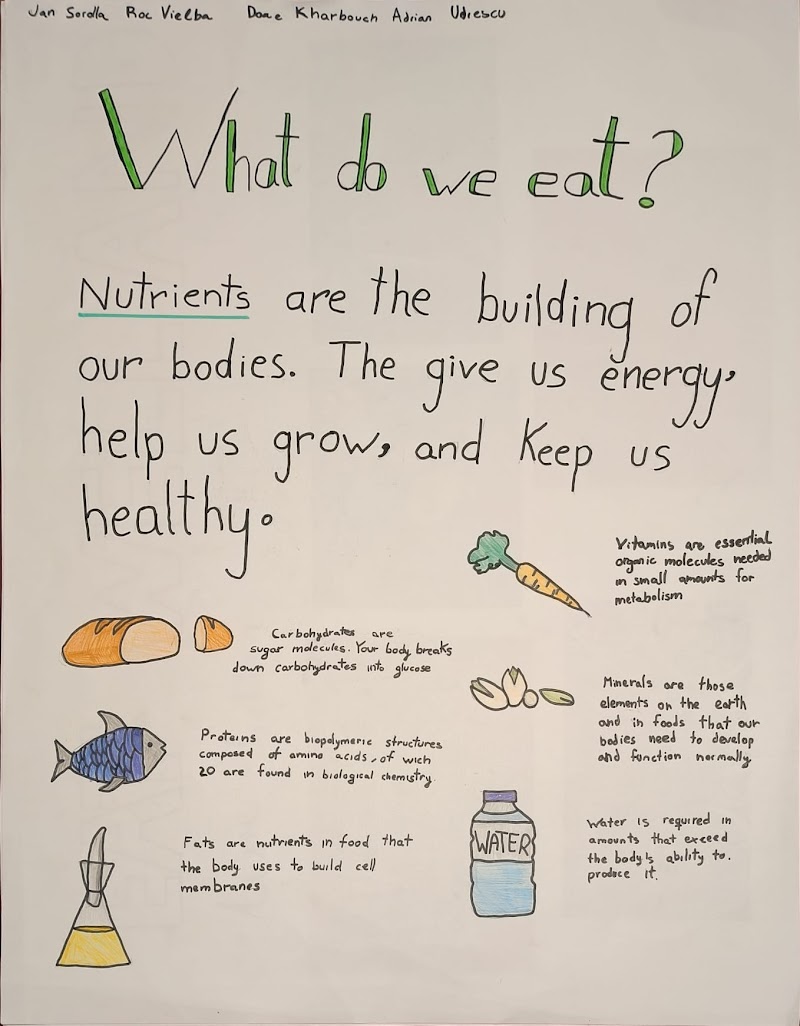 Jan Sorolla Roc Vielba Doae Kharbouch Adrian Udrescu
What do we eat?
Nutrients are the building of
our bodies. The give us energy,
help us grow, and Keep us
healthy.
Vitamins are essential
organic molecules needed
in small amounts for
metabolism
Carbohydrates are
sugar molecules. Your body breaks
down carbohydrates into glucose
Minerals are those
elements on the earth
and in foods that our
bodies need to develop
and function normally.
Proteins are biopolymeric structures
composed of amino acids, of wich
20 are found in biological chemistry.
Water is required in
amounts that exceed
the body's ability to.
produce it.
WATER
Fats are nutrients in food that
the body uses to build cell
membranes